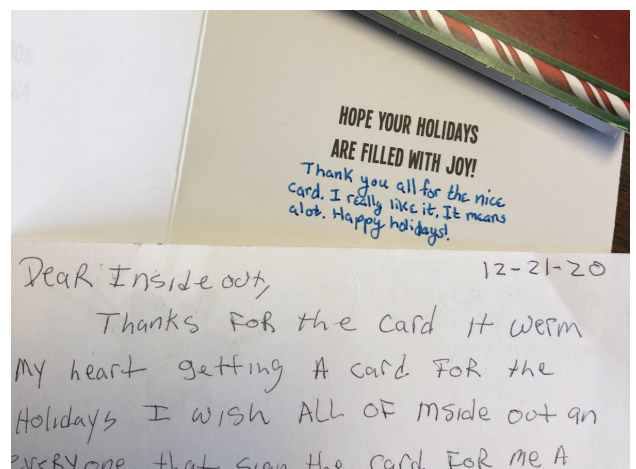 HOPE YOUR HOLIDAYS
ARE FILLED WITH JOY!
Thank you all for the nice
card. I really like it. It means
alot. Happy holidays!
Dear Inside out,
12-21-20
Thanks FOR the card It werm
My heart getting A card FOR the
Holidays I wish ALL OF Inside out an
everyone that sign the card FOR me A